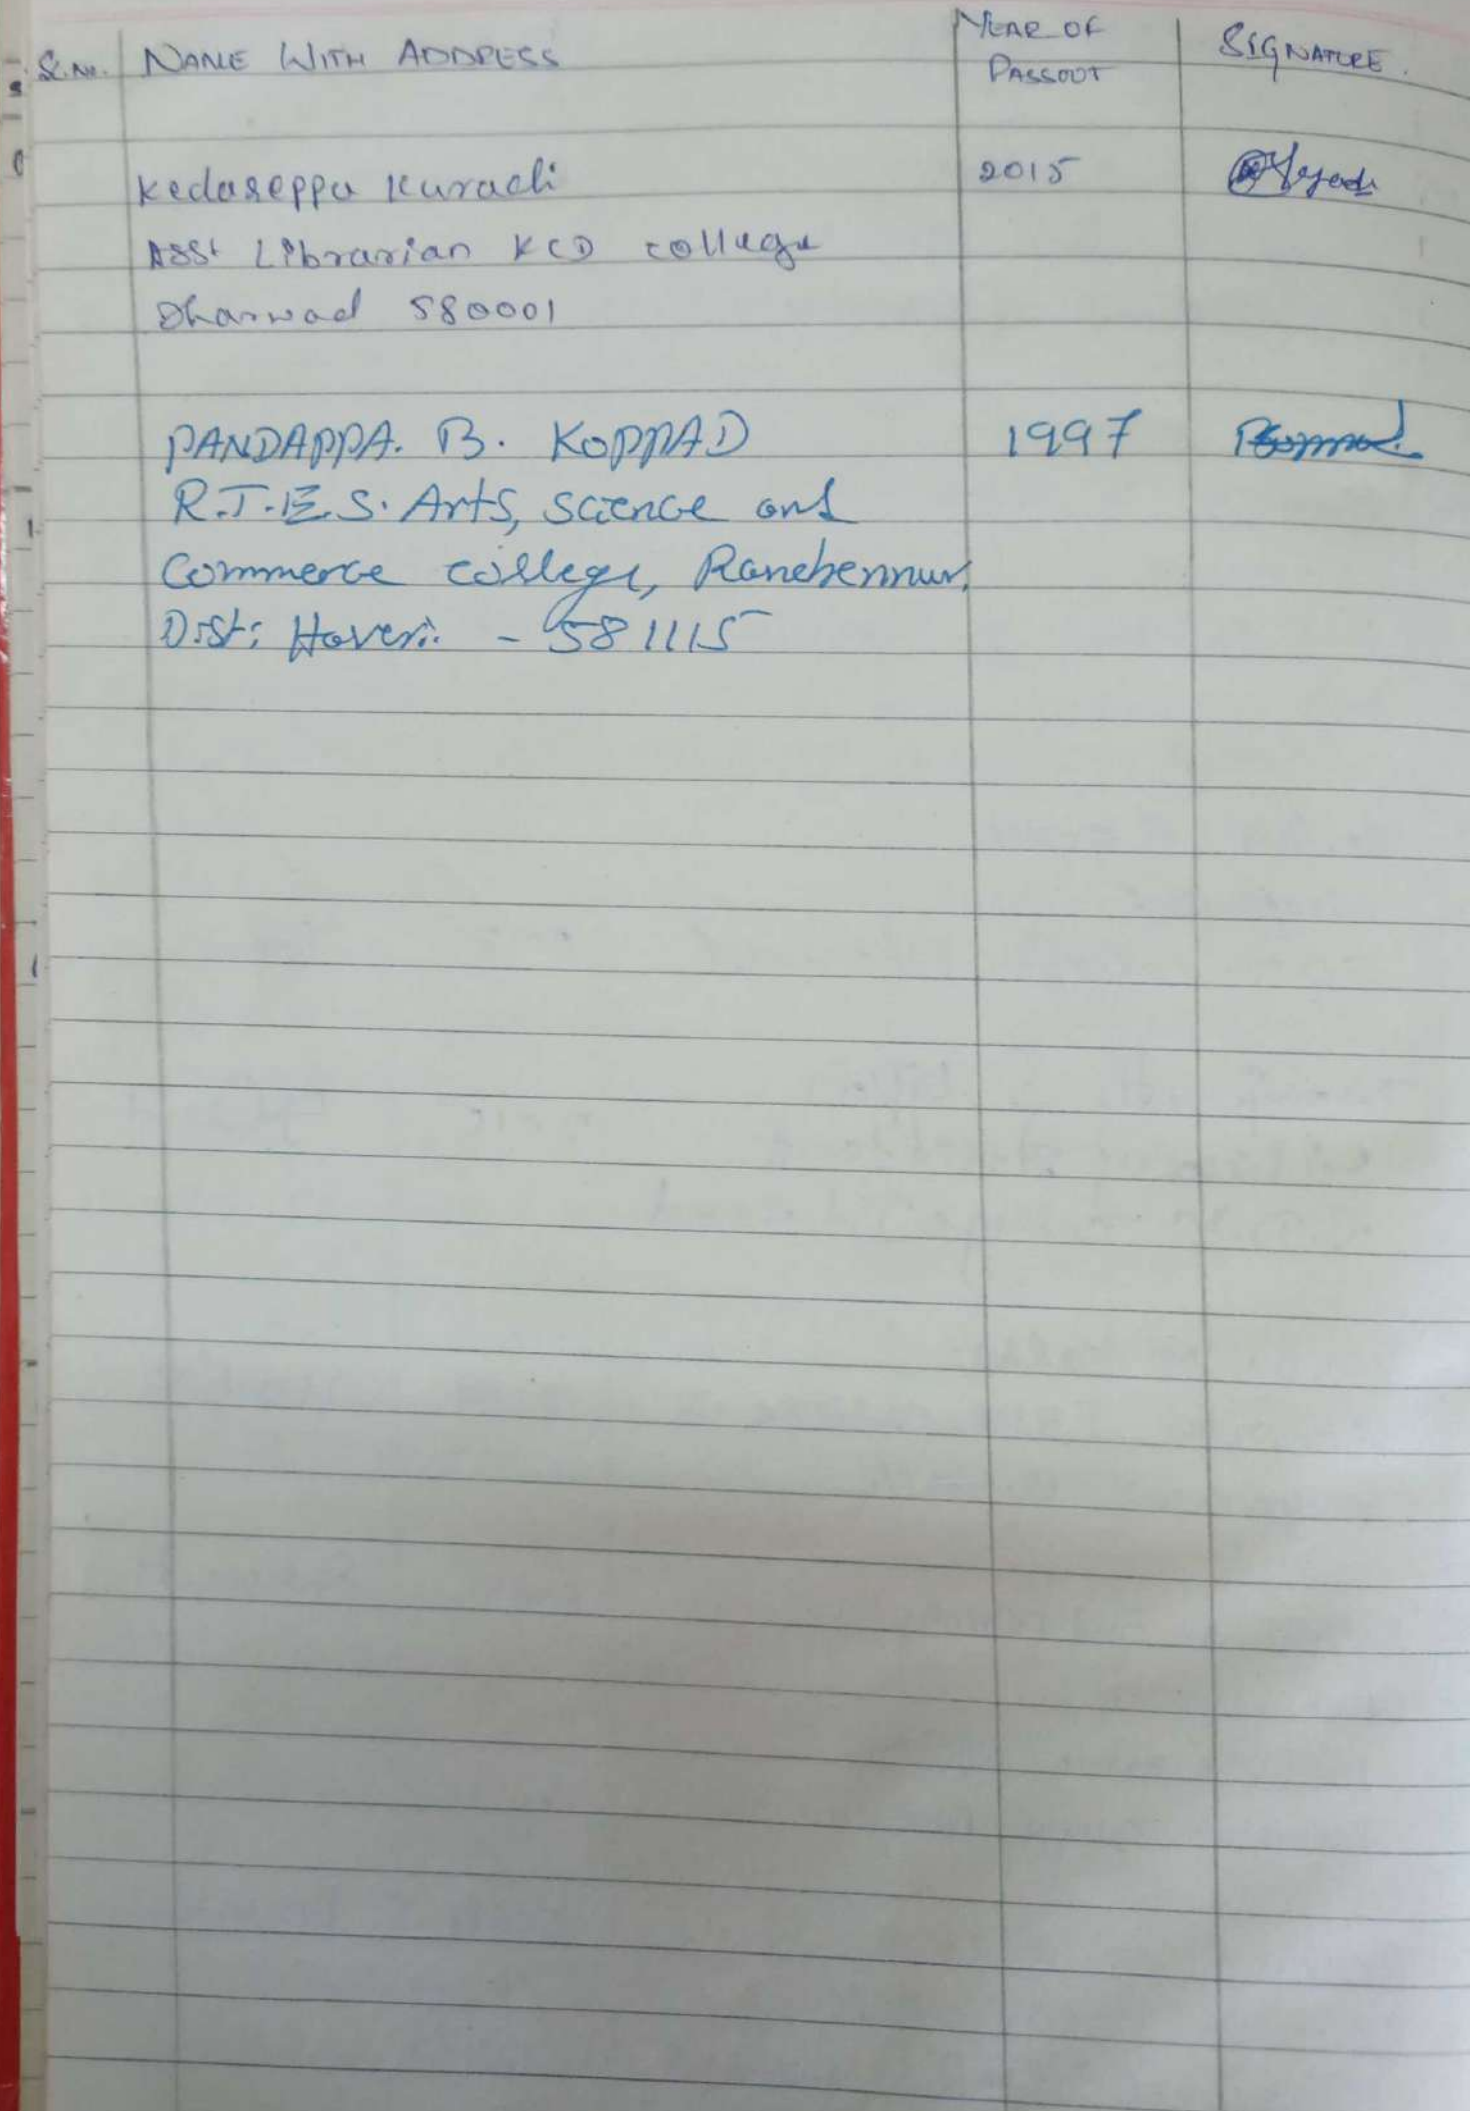 Sl.No. NAME WITH ADDRESS YEAR OF PASSOUT SIGNATURE.
Kedareppa Kuradi 2015
Asst Librarian KCD college
Dharwad 580001
PANDAPPA. B. KOPPAD 1997
R.T.E.S. Arts, Science and
Commerce college, Ranebennur,
Dist: Haveri. - 581115